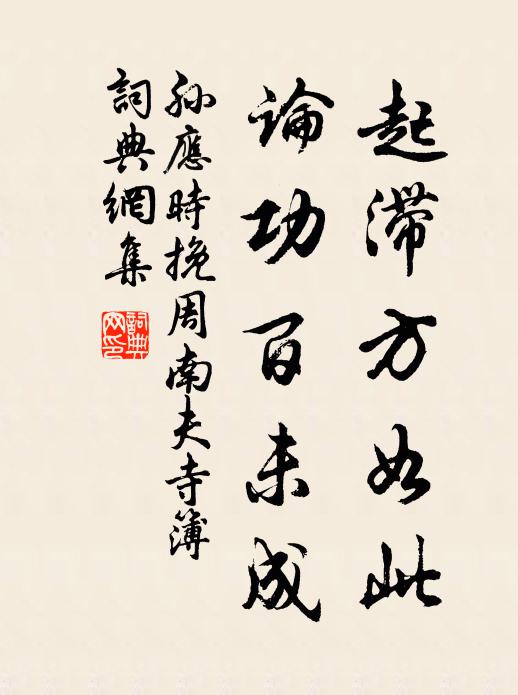 起滯方如此
論功百未成
孫應時挽周南夫寺簿
詞典網集
詞典網印